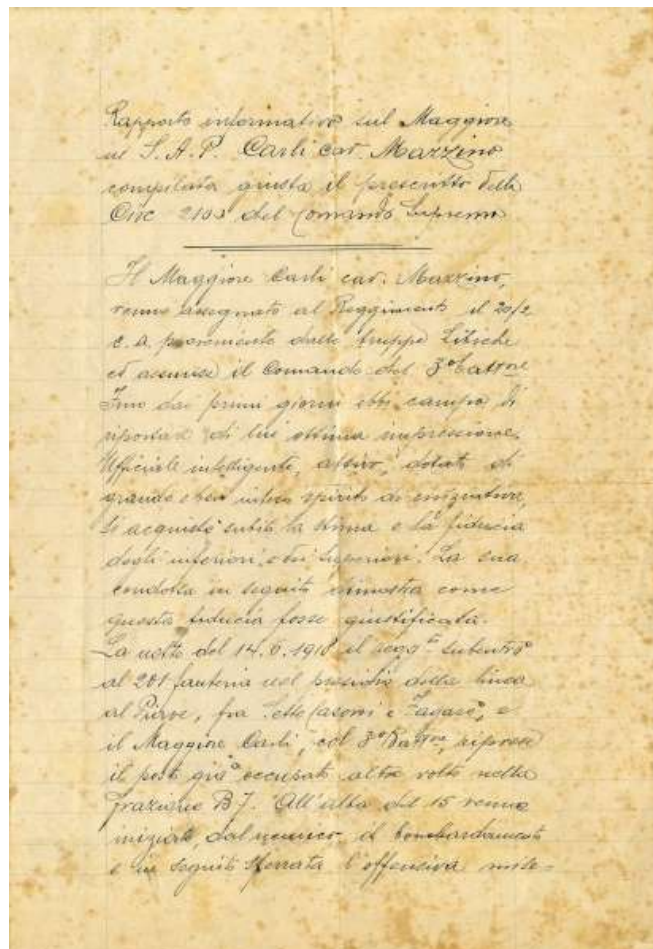 Rapporto informativo sul Maggiore
in S.A.P. Carli cav. Mazzino
compilato giusta il prescritto della
Circ 2100 del Comando Supremo
Il Maggiore Carli cav. Mazzino,
venne assegnato al Reggimento il 20/2
c.a. proveniente dalle truppe Libiche
ed assunse il Comando del 3° Battne
Fino dai primi giorni ebbi campo di
riportare di lui ottima impressione.
Ufficiale intelligente, attivo, dotato di
grande e ben inteso spirito di iniziativa,
si acquistò subito la stima e la fiducia
degli inferiori e dei superiori. La sua
condotta in seguito dimostra come
questa fiducia fosse giustificata.
La notte del 14.6.1918 il regg.to subentrò
al 201 fanteria nel presidio della linea
al Piave, fra Sette Casoni e
il Maggiore Carli, col 3° Battne, riprese
il posto già occupato altre volte nella
frazione B7. All'alba del 15 venne
iniziato dal nemico il bombardamento
e in seguito sferrata l'offensiva